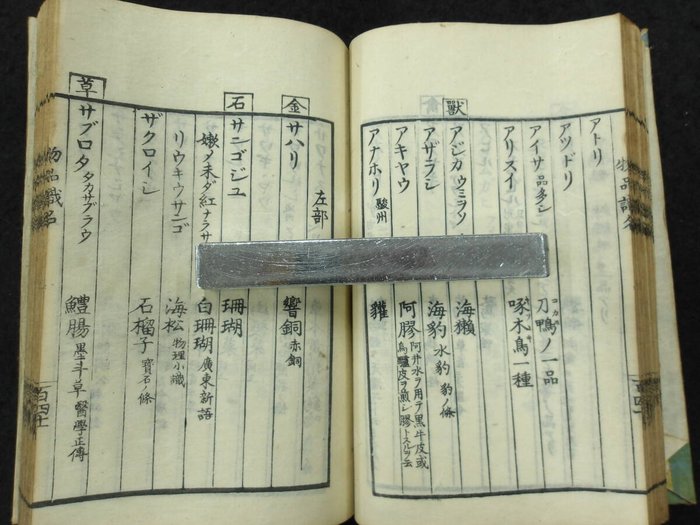 アトリ
アツドリ
アイサ 品多シ 刀鴨ノ一品
アリスイ 啄木鳥一種
獸
アジカ ウミヲソ 海獺
アザラシ 海豹 水豹 豹ノ條
アキヤウ 阿膠 阿井水ヲ用テ黒牛皮或烏驢皮ヲ煎シ膠トスルヲ云
アナホリ 駿州 貛
左部
金
サハリ 響銅 赤銅
石
サンゴジユ 珊瑚
嫩ノ未ダ紅ナラサ 白珊瑚 廣東新語
リウキウサンゴ 海松 物理小識
ザクロイシ 石榴子 寶石ノ條
草
サブロタ タカサブラウ 鱧腸 墨斗草 醫學正傳
物品識名